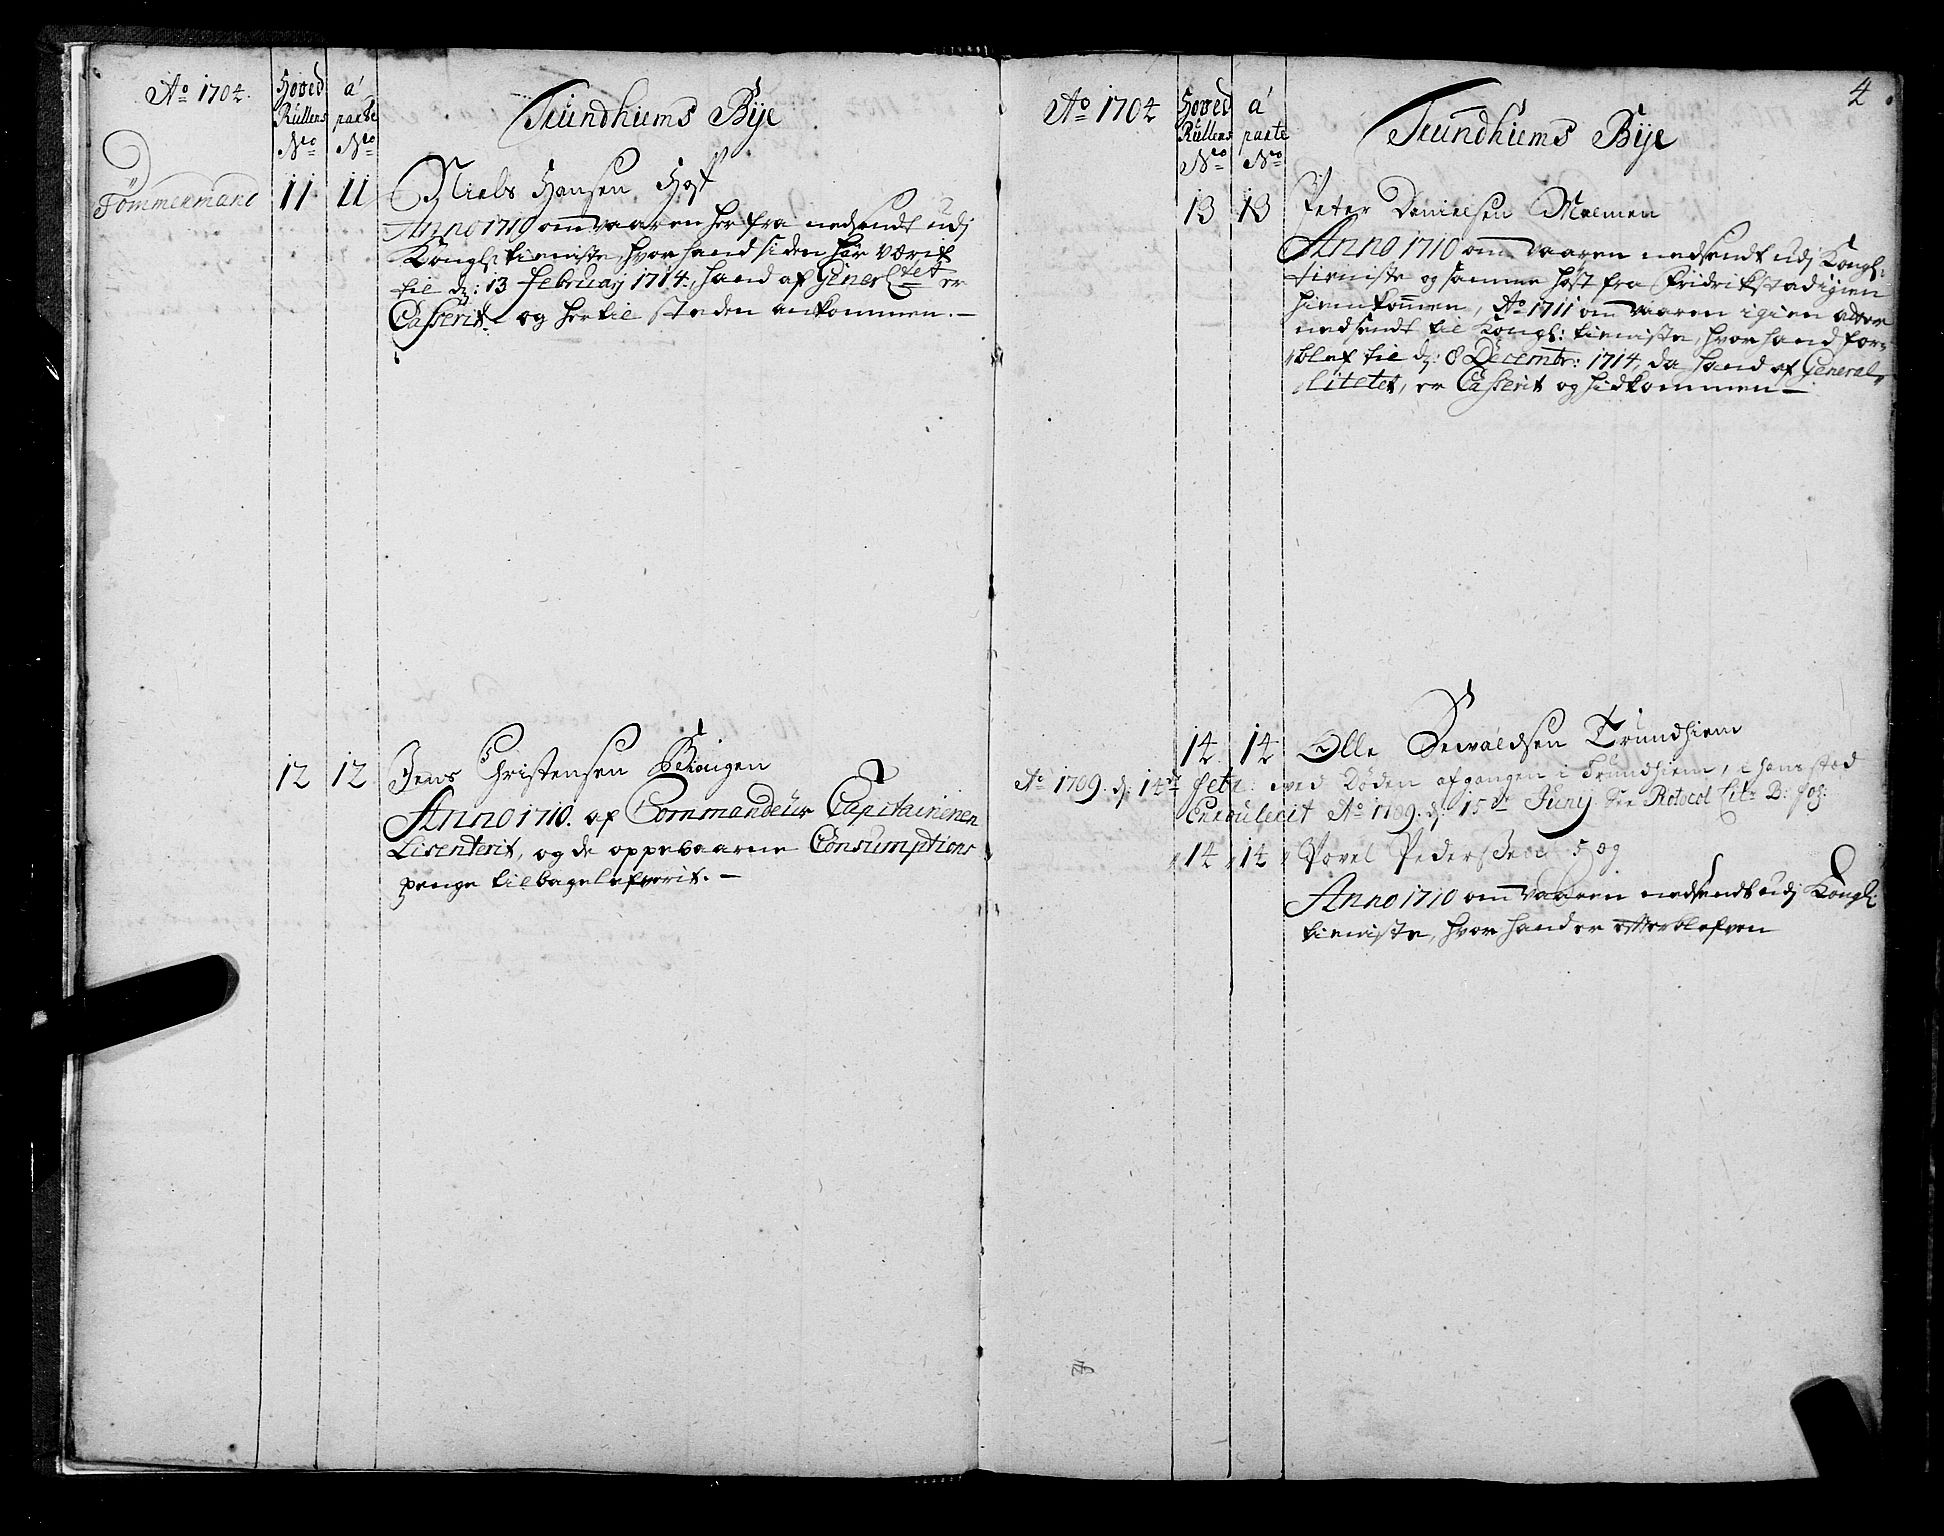 Ao 1704.
Hoved
Rullens
No
a
parte
No
Trundhiems Bÿe
Tömmermand
11 11 Niels Hansen Hoff
Anno 1710 om Vaaren her fra nedsendt udj
Kongl: tieniste, hvor hand siden har værit
til d: 13 Februarj 1714, hand af Generltet er
Casserit og her til steden ankommen. –
12 12 Jens Christensen
Anno 1710. af Commandeur Capitainenen
Lisenterit, og de oppebaarne Consumptions
penge tilbagelefverit. –
4
Ao 1704
Hoved
Rullens
No
a
parte
No
Trundhiems Bÿe
13 13 Peter Danielsen
Anno 1710 om Vaaren nedsendt udj Kongl:
tieniste og samme höst fra Fridrikstad igien
hiemkommen, Ao 1711 om Vaaren igien
nedsendt til Kongl: tieniste, hvor hand for-
blef til d: 8 Decembr: 1714, da hand af General-
litetet, er Casserit og hidkommen –
14 14 Olle Sewaldsen Trundhiem
Ao 1709. d: 14de Febr: ved Döden afgangen i Trundhiem, i hans sted
Enroulerit Ao 1709. d: 15de Junij See Protocol Litr B: fog:
14 14 Povel Pedersen
Anno 1710 om Vaaren nedsendt udj Kongl:
tieniste, hvor hand er efterblefven